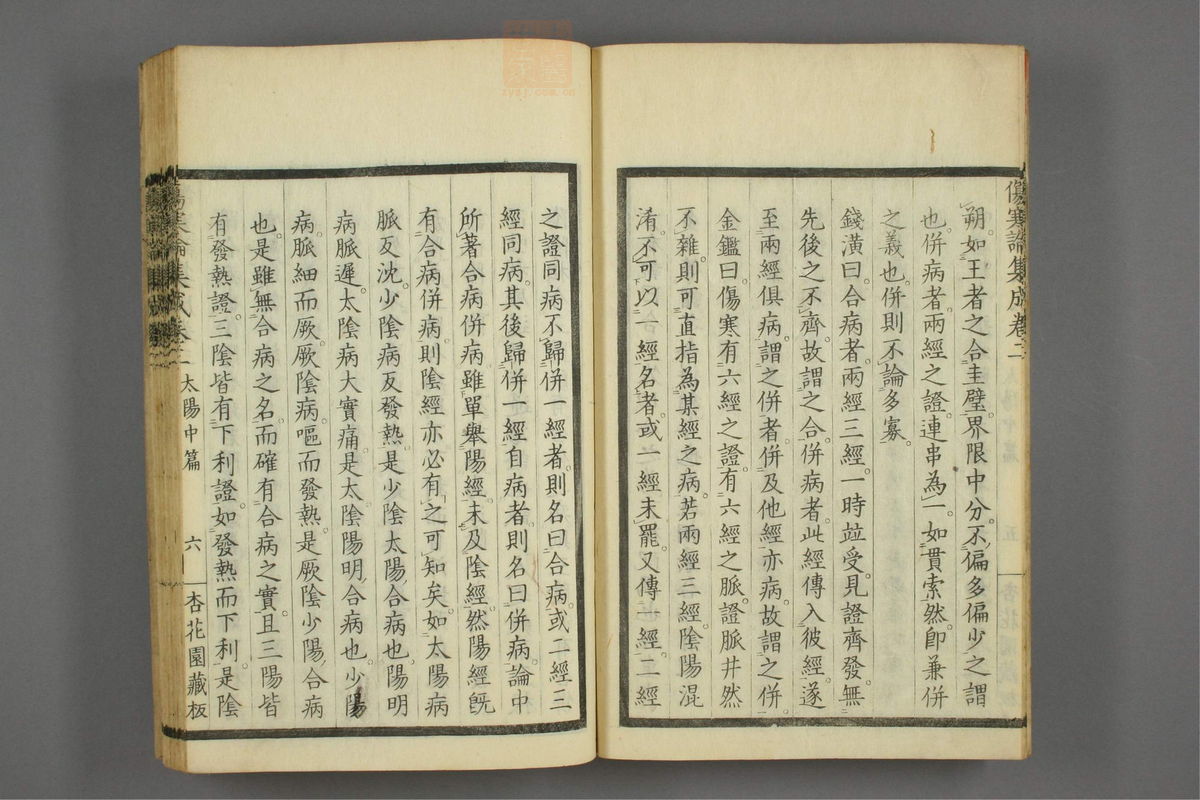 傷寒論集成卷二
朔如王者之合圭璧界限中分不偏多偏少之謂
也併病者兩經之證連串為一如貫索然卽兼併
之義也併則不論多寡
錢潢曰合病者兩經三經一時竝受見證齊發無
先後之不齊故謂之合併病者此經傳入彼經遂
至兩經俱病謂之併者併及他經亦病故謂之併
金鑑曰傷寒有六經之證有六經之脈證脈井然
不雜則可直指為某經之病若兩經三經陰陽混
淆不可以一經名者或一經未罷又傳一經二經
之證同病不歸併一經者則名曰合病或二經三
經同病其後歸併一經自病者則名曰併病論中
所著合病併病雖單舉陽經未及陰經然陽經旣
有合病併病則陰經亦必有之可知矣如太陽病
脈反沈少陰病反發熱是少陰太陽合病也陽明
病脈遲太陰病大實痛是太陰陽明合病也少陽
病脈細而厥厥陰病嘔而發熱是厥陰少陽合病
也是雖無合病之名而確有合病之實且三陽皆
有發熱證三陰皆有下利證如發熱而下利是陰
傷寒論集成卷二 太陽中篇 六 杏花園藏板